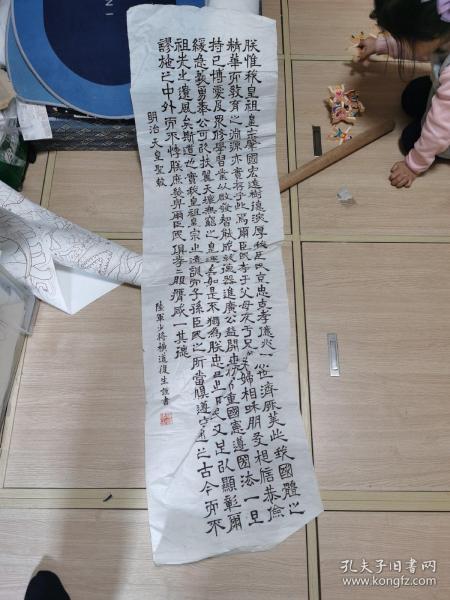 朕惟我皇祖皇宗肇國宏遠樹德深厚我臣民克忠克孝億兆一心世濟厥美此我國體之
精華而教育之淵源亦實存乎此焉爾臣民孝于父母友于兄弟夫婦相和朋友相信恭儉
持己博愛及眾修學習業以啟發智能成就德器進廣公益開世務常重國憲遵國法一旦
緩急義勇奉公以扶翼天壤無窮之皇運如是不獨為朕忠良臣民又足以顯彰爾
祖先之遺風矣斯道也實我皇祖皇宗之遺訓而子孫臣民之所當俱遵守通之古今而不
謬施之中外而不悖朕庶幾與爾臣民俱拳拳服膺咸一其德
明治天皇聖敕
陸軍少將橫道復生謹書
孔夫子旧书网
www.kongfz.com